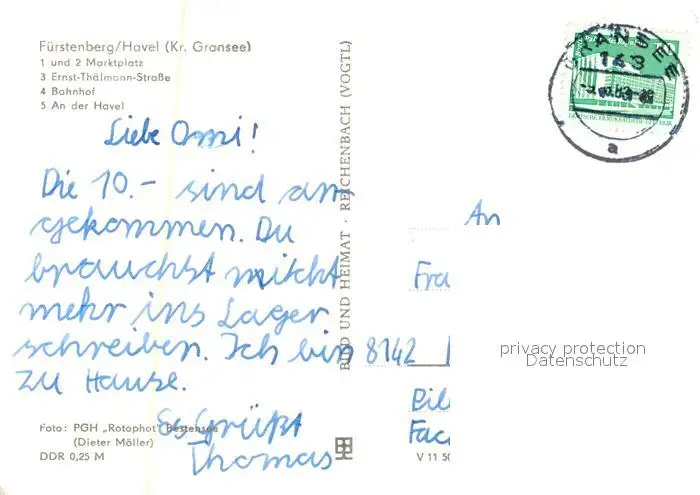 Fürstenberg/Havel (Kr. Gransee)
1 und 2 Marktplatz
3 Ernst-Thälmann-Straße
4 Bahnhof
5 An der Havel
Liebe Omi!
Die 10.- sind an
gekommen. Du
brauchst nicht
mehr ins Lager
schreiben. Ich bin
zu Hause.
Es Grüßt
Thomas
Foto: PGH „Rotophot" Bestensee
(Dieter Möller)
DDR 0,25 M
BILD UND HEIMAT · REICHENBACH (VOGTL)
V 11 50
GRANSEE
143
a
An
Fra
8142
privacy protection
Datenschutz